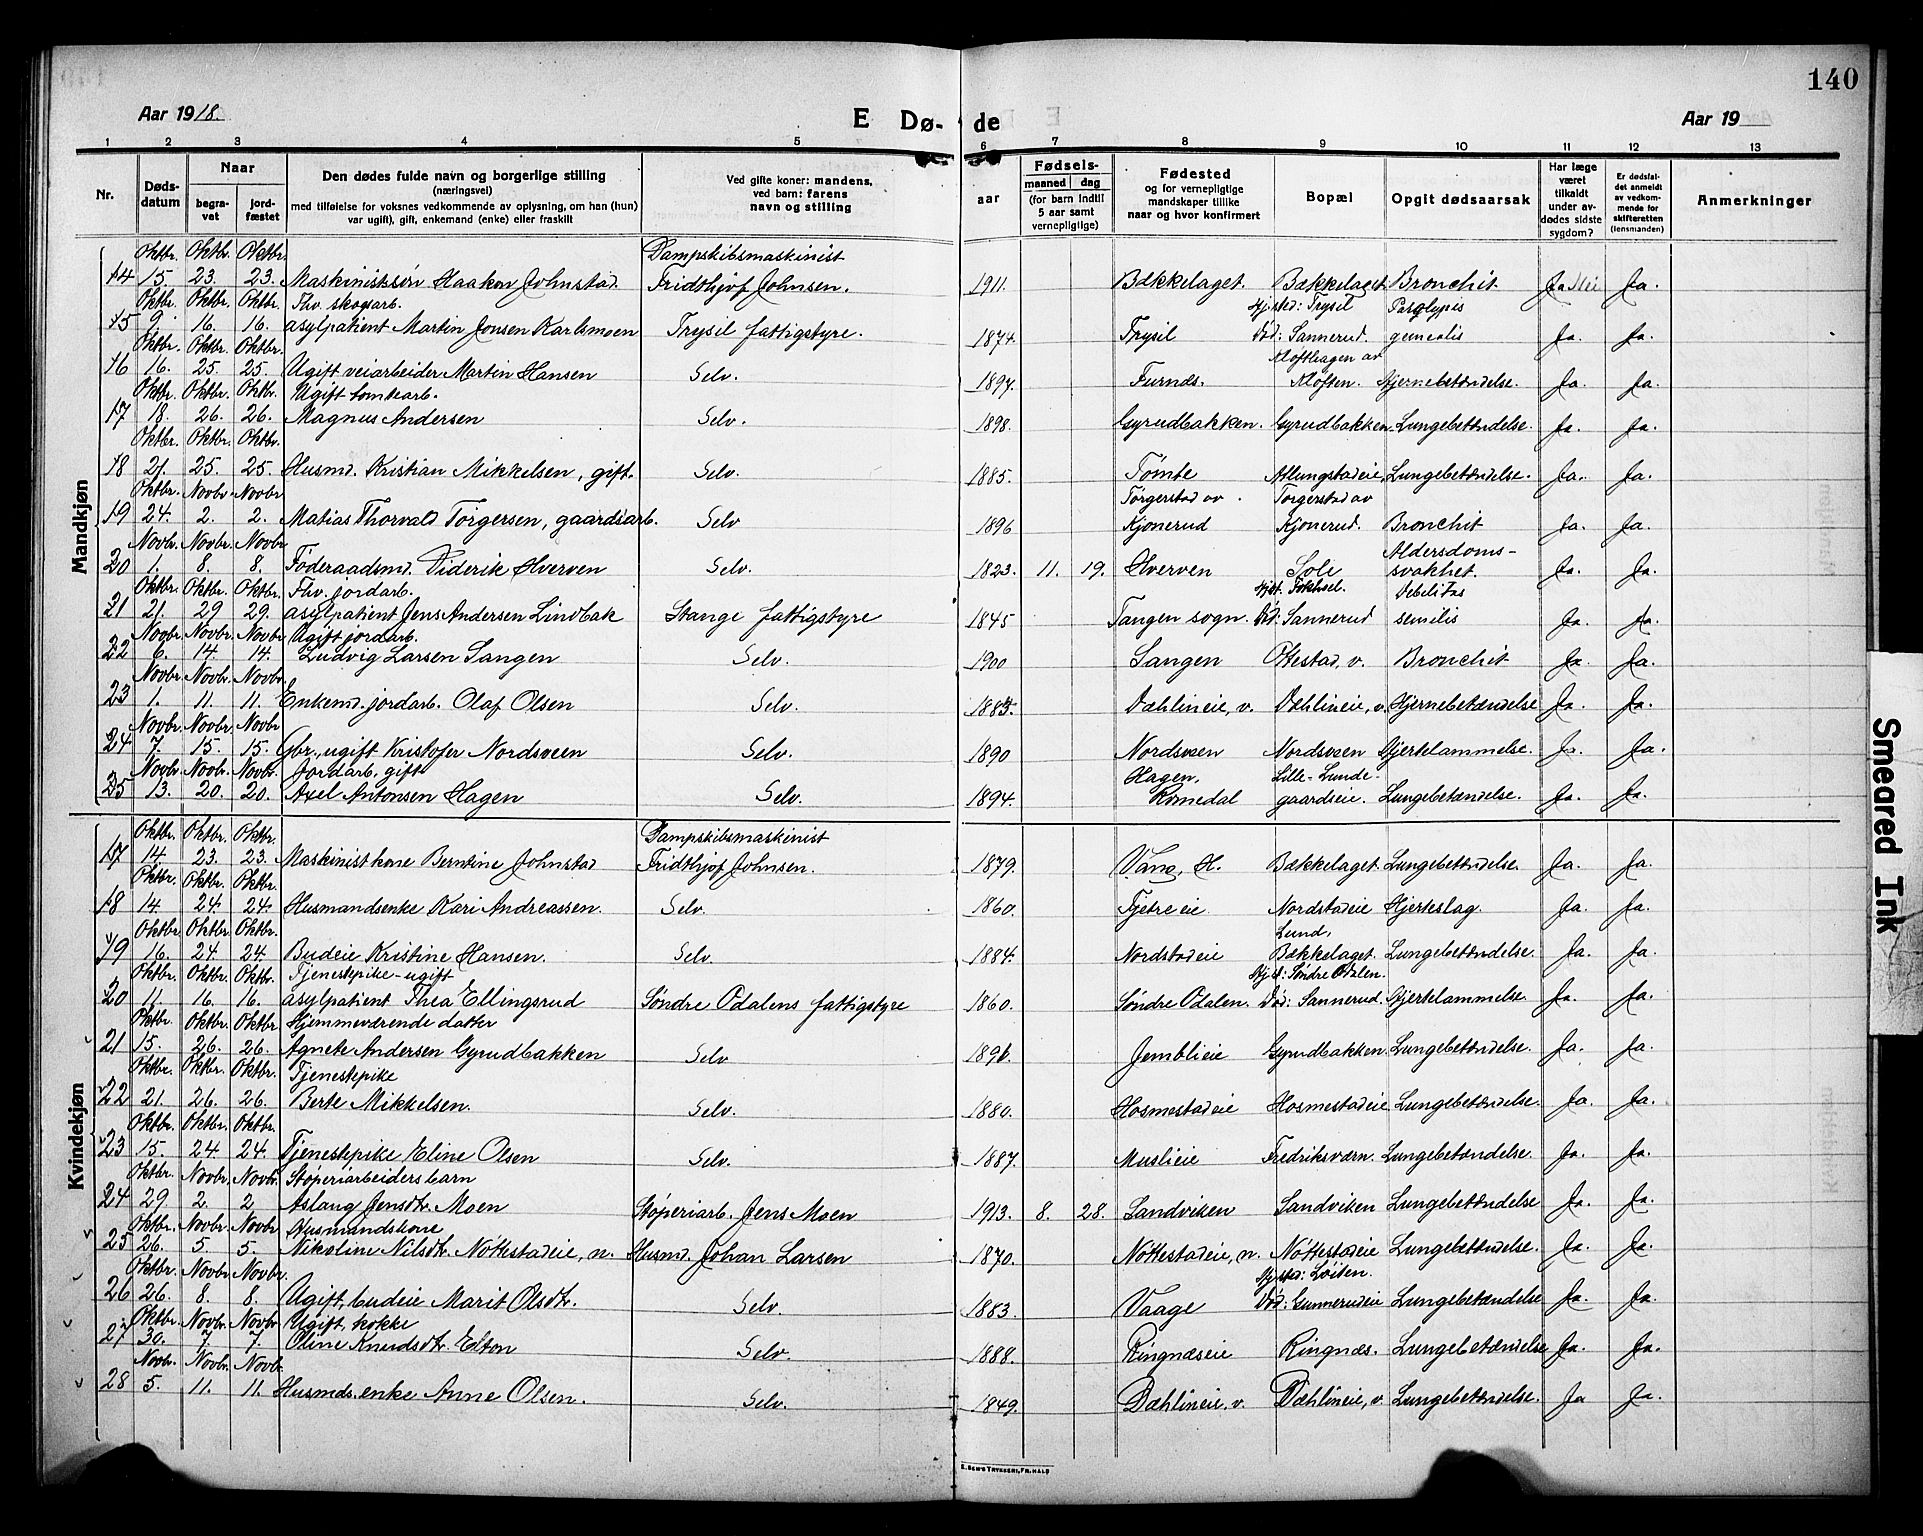 140
Aar 1918.
E Dø- de
Aar 19
1 2 3 4 5 6 7 8 9 10 11 12 13
Nr.
Døds-
datum
Naar
begra-
vet
jord-
fæstet
Den dødes fulde navn og borgerlige stilling
(næringsvei)
med tilføielse for voksnes vedkommende av oplysning, om han (hun)
var ugift), gift, enkemand (enke) eller fraskilt
Ved gifte koner: mandens,
ved barn: farens
navn og stilling
Fødsels-
aar
maaned dag
(for barn indtil
5 aar samt
vernepligtige)
Fødested
og for vernepligtige
mandskaper tillike
naar og hvor konfirmert
Bopæl
Opgit dødsaarsak
Har læge
været
tilkaldt
under av-
dødes sidste
sygdom?
Er dødsfal-
det anmeldt
av vedkom-
mende for
skifteretten
(lensmanden)
Anmerkninger
Mandkjøn
Oktbr. Oktbr. Oktbr. Dampskibsmaskinist
14 15. 23. 23. Maskinistsøn Haakon Johnstad Fridthjof Johnsen. 1911. Bækkelaget. Bækkelaget Bronchit Ja Ja.
Oktbr. Oktbr. Oktbr. Fhv. skogsarb. Hjsted: Trysil Paralypis
15 9. 16. 16. asylpatient Martin Jonsen Karlsmoen Trysil fattigstyre. 1874. Trysil Død: Sannerud. genealis Ja. Ja.
Oktbr. Oktbr. Oktbr. Kløfthagen av
16 16. 25. 25. Ugift veiarbeider Martin Hansen Selv. 1897. Furnæs. Kløften. Hjernebetændelse. Ja. Ja.
Oktbr. Oktbr. Oktbr. Ugift tomtearb.
17 18. 26. 26. Magnus Andersen Selv. 1898. Gyrudbakken. Gyrudbakken Lungebetændelse. Ja. Ja.
Oktbr. Oktbr. Oktbr.
18 21. 25. 25. Husmd. Kristian Mikkelsen, gift. Selv. 1885. Tømte Atlungstadeie, Lungebetændelse. Ja. Ja.
Oktbr. Novbr. Novbr Torgerstad av Torgerstad av
19 24. 2. 2. Matias Thorvald Torgersen, gaardsarb. Selv 1896 Kjonerud Kjonerud. Bronchit Ja. Ja.
Novbr. Novbr. Novbr Aldersdoms-
20 1. 8. 8. Føderaadsmd. Diderik Hverven Selv. 1823. 11. 19. Hverven Sole svakhet. Ja. Ja.
Oktbr. Oktbr. Oktbr. Fhv. jordarb. Debilitas
21 21. 29 29. asylpatient Jens Andersen Lindbak Stange fattigstyre 1845 Tangen sogn. Død: Sannerud semilis Ja. Ja.
Novbr. Novbr. Novbr Ugift jordarb.
22 6. 14. 14. Ludvig Larsen Sangen Selv. 1900 Sangen Ottestad, v. Bronchit Ja. Ja.
Novbr. Novbr. Novbr.
23 1. 11. 11. Enkemd. jordarb. Olaf Olsen Selv. 1885. Dæhlineie, v. Dæhlineie, v. Hjernebetændelse Ja. Ja.
Novbr. Novbr. Novbr
24 7. 15. 15. Gbr., ugift Kristofer Nordsveen Selv. 1890 Nordsveen Nordsveen Hjertelammelse. Ja. Ja.
Novbr. Novbr. Novbr. Jordarb. gift Hagen, Lille-Lunde-
25 13. 20. 20. Axel Antonsen Hagen Selv. 1894. Romedal gaardseie. Lungebetændelse. Ja. Ja.
Kvindekjøn
Oktbr. Oktbr. Oktbr. Dampskibsmaskinist
17 14. 23. 23. Maskinist kone Berntine Johnstad Fridthjof Johnsen. 1879. Vang, H. Bækkelaget. Lungebetændelse. Ja. Ja.
Oktbr. Oktbr. Oktbr.
18 14. 24. 24. Husmandsenke Kari Andreassen. Selv. 1860. Fjetre eie Nordstadeie Hjerteslag. Ja. Ja.
Oktbr. Oktbr. Oktbr. Lund,
19 16. 24. 24. Budeie Kristine Hansen. Selv. 1884. Nordstadeie Bækkelaget. Lungebetændelse. Ja. Ja.
Oktbr. Oktbr. Oktbr. Tjenestepike - ugift Hjst: Søndre Odalen.
20 11. 16. 16. asylpatient Thea Ellingsrud Søndre Odalens fattigstyre 1860. Søndre Odalen. Død: Sannerud. Hjertelammelse. Ja. Ja.
Oktbr. Oktbr. Oktbr Hjemmeværende datter
21 15. 26. 26. Agnete Andersen Gyrudbakken Selv 1891. Jemblieie Gyrudbakken. Lungebetændelse. Ja. Ja.
Oktbr. Oktbr. Oktbr. Tjenestepike
22 21. 26. 26. Berte Mikkelsen. Selv. 1880. Hosmestadeie Hosmestadeie Lungebetændelse. Ja. Ja.
Oktbr. Oktbr. Oktbr.
23 15. 24. 24. Tjenestepike Eline Olsen Selv. 1887. Muslieie Fredriksværn. Lungebetændelse. Ja. Ja.
Oktbr. Novbr. Novbr. Støperiarbeidersbarn
24 29 2. 2 Aslaug Jensdtr. Moen Støperiarb. Jens Moen 1913. 8. 28. Sandviken Sandviken Lungebetændelse Ja. Ja.
Oktbr. Novbr. Novbr Husmandskone
25 26. 5. 5. Nikoline Nilsdtr. Nøttestadeie, n. Husmd. Johan Larsen 1870. Nøttestadeie, n. Nøttestadeie Lungebetændelse. Ja. Ja.
Oktbr. Novbr. Novbr. Hjsted: Løiten.
26 26. 8. 8. Ugift, budeie Marit Olsdtr. Selv. 1883. Vaage Død: Gunnerudeie Lungebetændelse Ja. Ja.
Oktbr. Novbr. Novbr Ugift, kokke
27 30. 7. 7. Oline Knudsdtr. Elton Selv. 1888. Ringnæseie Ringnæs. Lungebetændelse Ja. Ja.
Novbr. Novbr. Novbr.
28 5. 11. 11. Husmds. enke Anne Olsen. Selv. 1849. Dæhlineie, v. Dæhlineie, v. Lungebetændelse. Ja Ja.
Smeared Ink